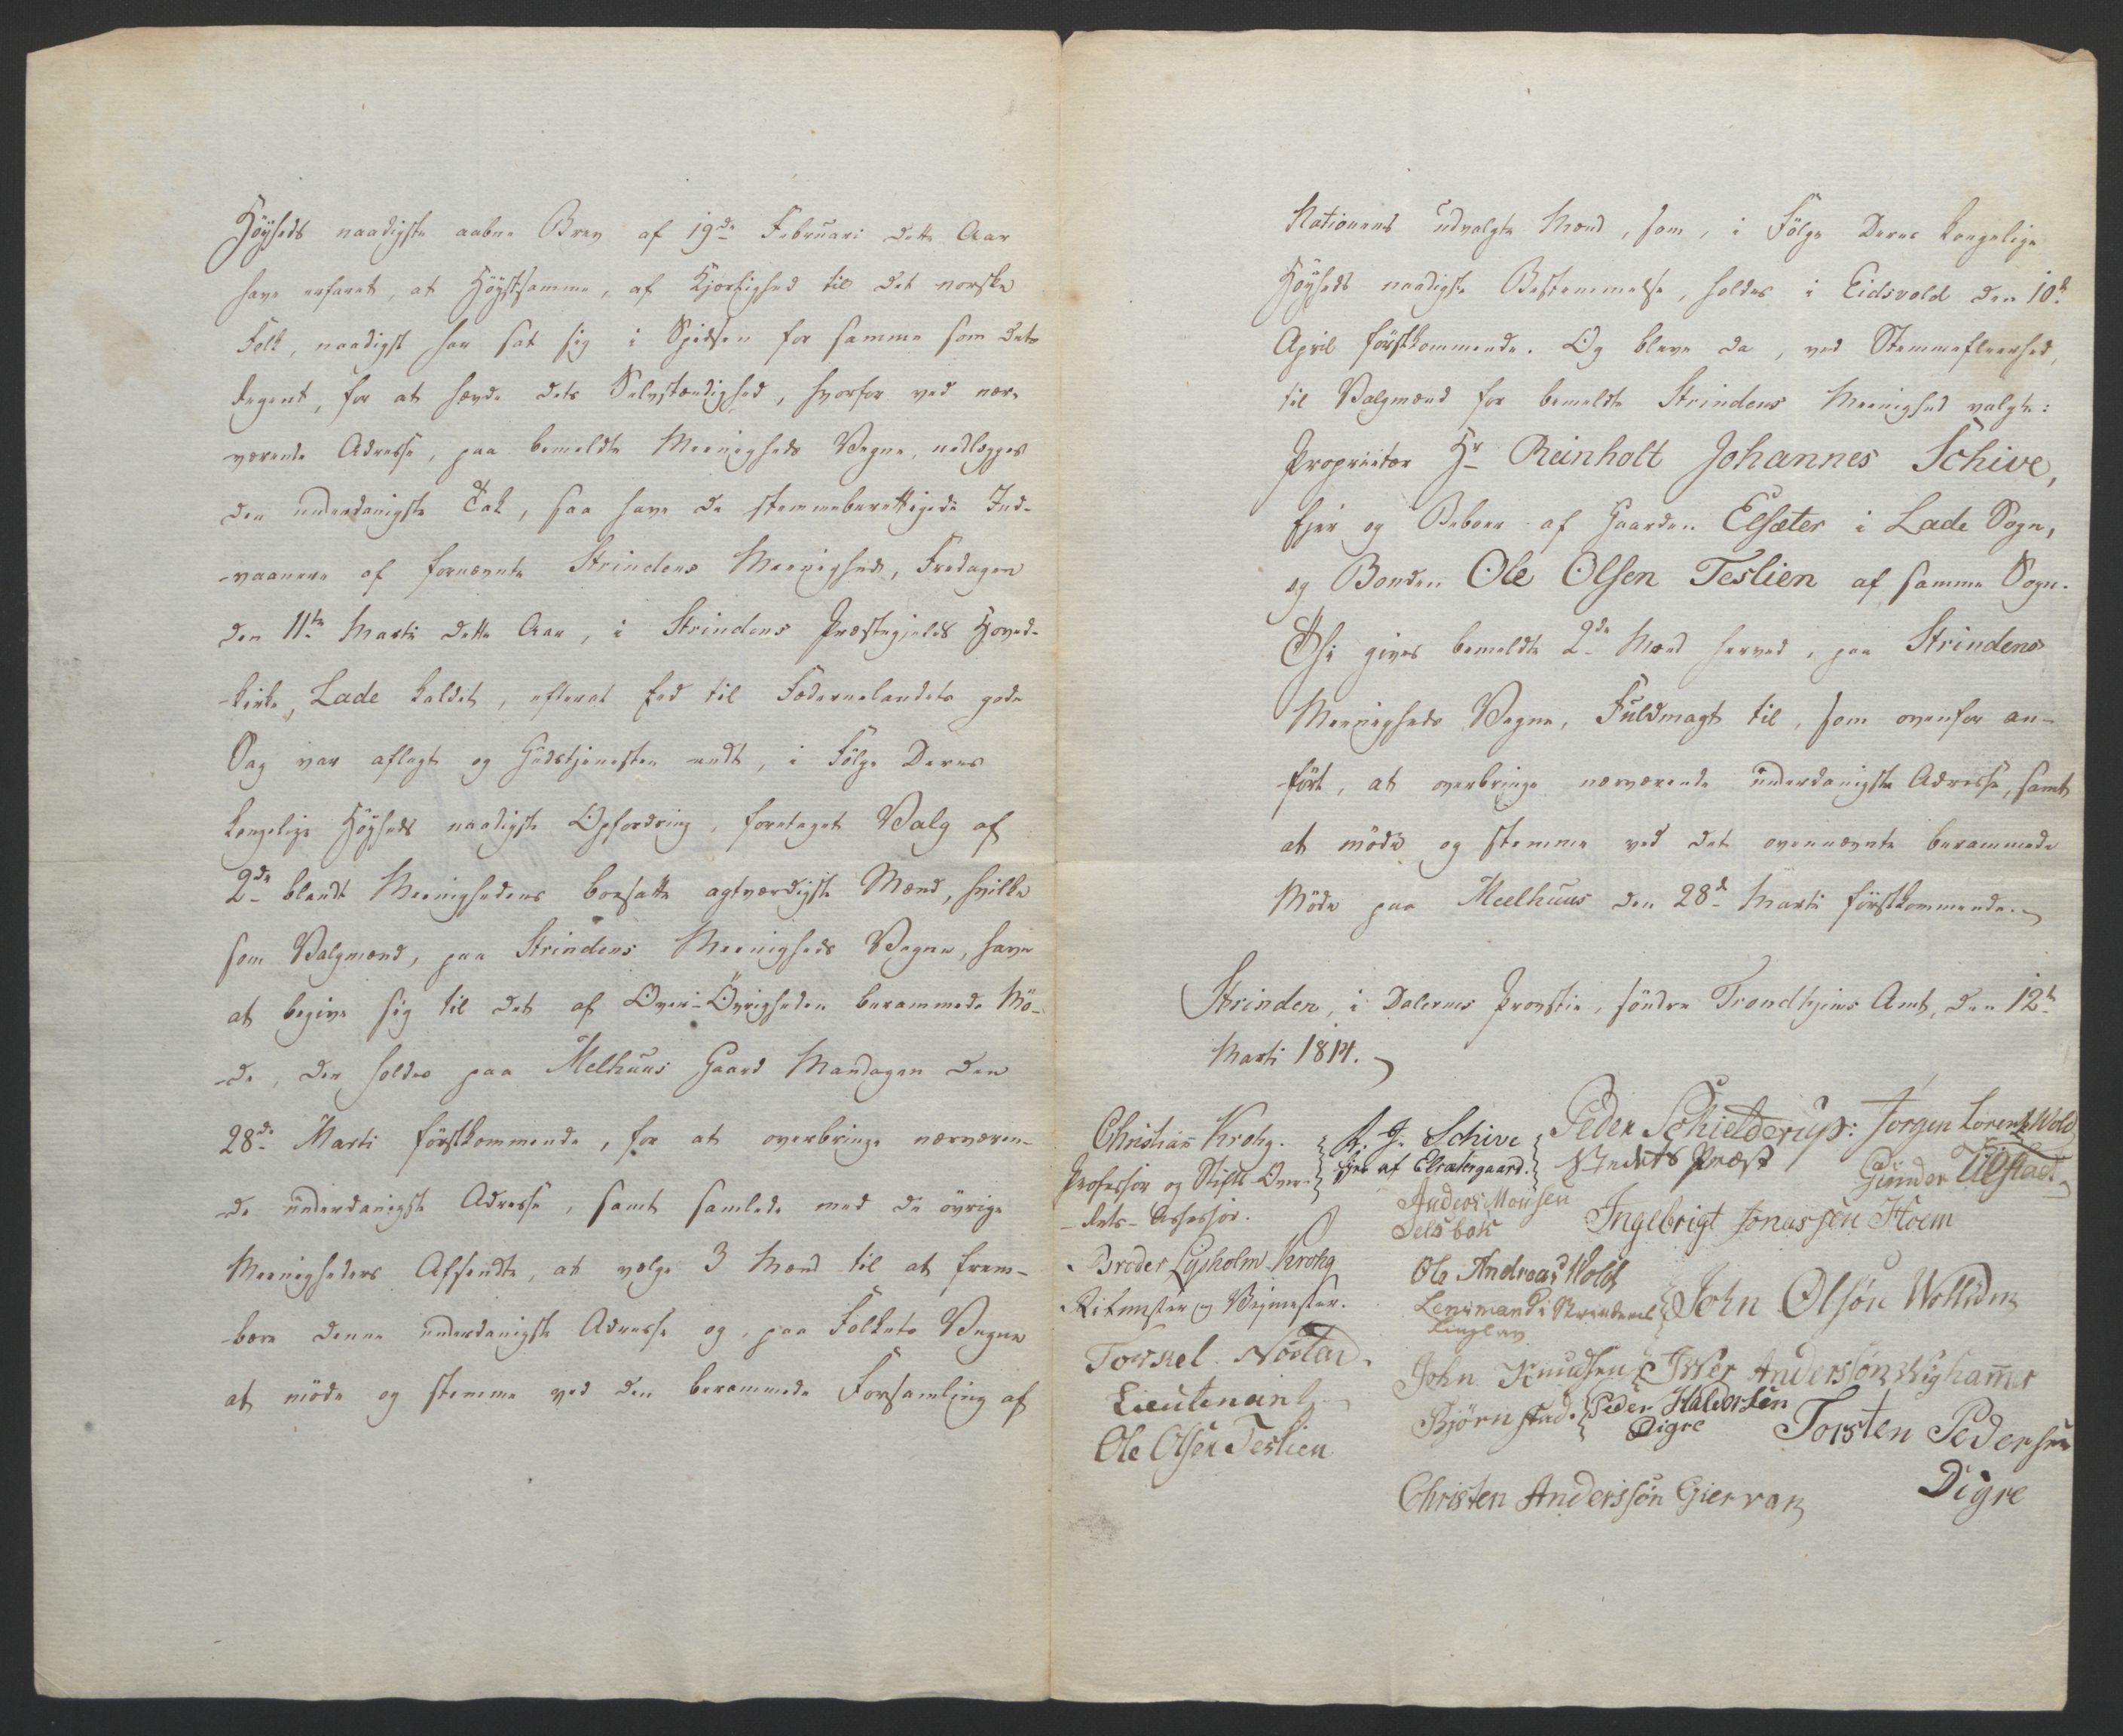 Höyheds naadigste aabne Brev af 19de Februari dette Aar
have erfaret, at Höystsamme, af Kjærlighed til det norske
Folk, naadigst har sat sig i Spidsen for samme som dets
Regent, for at hævde dets Selvstændighed, hvorfor ved nær-
værende Adresse, paa bemeldte Meenigheds Vegne, nedlægges
den underdanigste Tak, saa have de stemmeberettigede Ind-
-vaanere af fornævnte Strindens Meenighed, Fredagen
den 11te Martii dette Aar, i Strindens Præstegjelds Hoved-
-kirke, Lade kaldet, efterat Eed til Fædernelandets gode
Sag var aflagt og Gudstjenesten endt, i Fölge Deres
Kongelige Höyheds naadigste Opfordring, foretaget Valg af
2de blandt Meenighedens bosatte agtværdigste Mænd, hvilke
som Valgmænd, paa Strindens Meenigheds Vegne, have
at begive sig til det af Over-Övrigheden berammede Mö-
-de, der holdes paa Melhuus Gaard Mandagen den
28de Marti förstkommende, for at overbringe nærværen-
-de underdanigste Adresse, samt samlede med de övrige
Meenigheders Afsendte, at vælge 3 Mænd til at frem-
-bære denne underdanigste Adresse og, paa Folkets Vegne
at möde og stemme ved den berammede Forsamling af
Nationens udvalgte Mænd, som, i Fölge Deres Kongelige
Höyheds naadigste Bestemmelse, holdes i Eidsvold den 10de
April förstkommende. Og bleve da, ved Stemmefleerhed,
til Valgmænd for bemeldte Strindens Meenighed valgte:
Proprietær Hr Reinholt Johannes Schive,
Ejer og Beboer af Gaarden Elsæter i Lade Sogn,
og Bonden Ole Olsen Teslien af samme Sogn.
Thi gives bemeldte 2de Mænd herved, paa Strindens
Meenigheds Vegne, Fuldmagt til, som ovenfor an-
-fört, at overbringe nærværende underdanigste Adresse, samt
at möde og stemme ved det ovennævnte berammede
Möde paa Meelhuus den 28de Martii förstkommende.
Strinden, i Dalernes Provstie, söndre Trondhjems Amt, den 12te
Marti 1814.
Christian Krohg. R. J. Schive Peder Schielderup: Jørgen Lorentz Wold
Professor og Stifts-Over- Ejer af Elsætergaard. Stedets Præst Gunder Tilstad
-Rets-Assessor. Anders Monsen
Selsbak Ingebrigt Jonassen Hoem
Broder Lysholm Krohg Ole Andreas Wold
Ritmester og Vejmester. Lensmand i Strindens
Tinglav John Olsøn Wollidn
Torkel Nöstad. John Knudsen Iver Anderssøn Wighamer
Lieutenant Björnstad. Peder Haldorsen
Digre Torsten Pedersen
Ole Olsen Teslien Digre
Christen Anderssøn Giervan